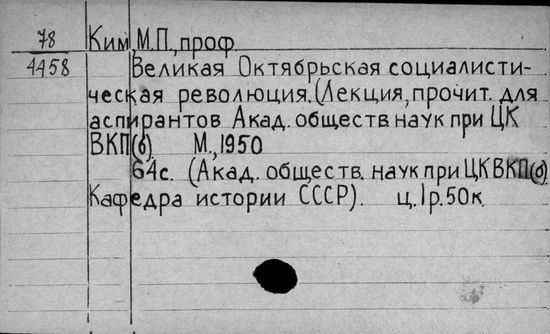 78 Ким, М.П., проф.
4458 Великая Октябрьская социалисти-
ческая революция. (Лекция, прочит. для
аспирантов Акад. обществ. наук при ЦК
ВКП(б). М., 1950
64с. (Акад. обществ. наук при ЦК ВКП(б).
Кафедра истории СССР). ц. 1р. 50к.